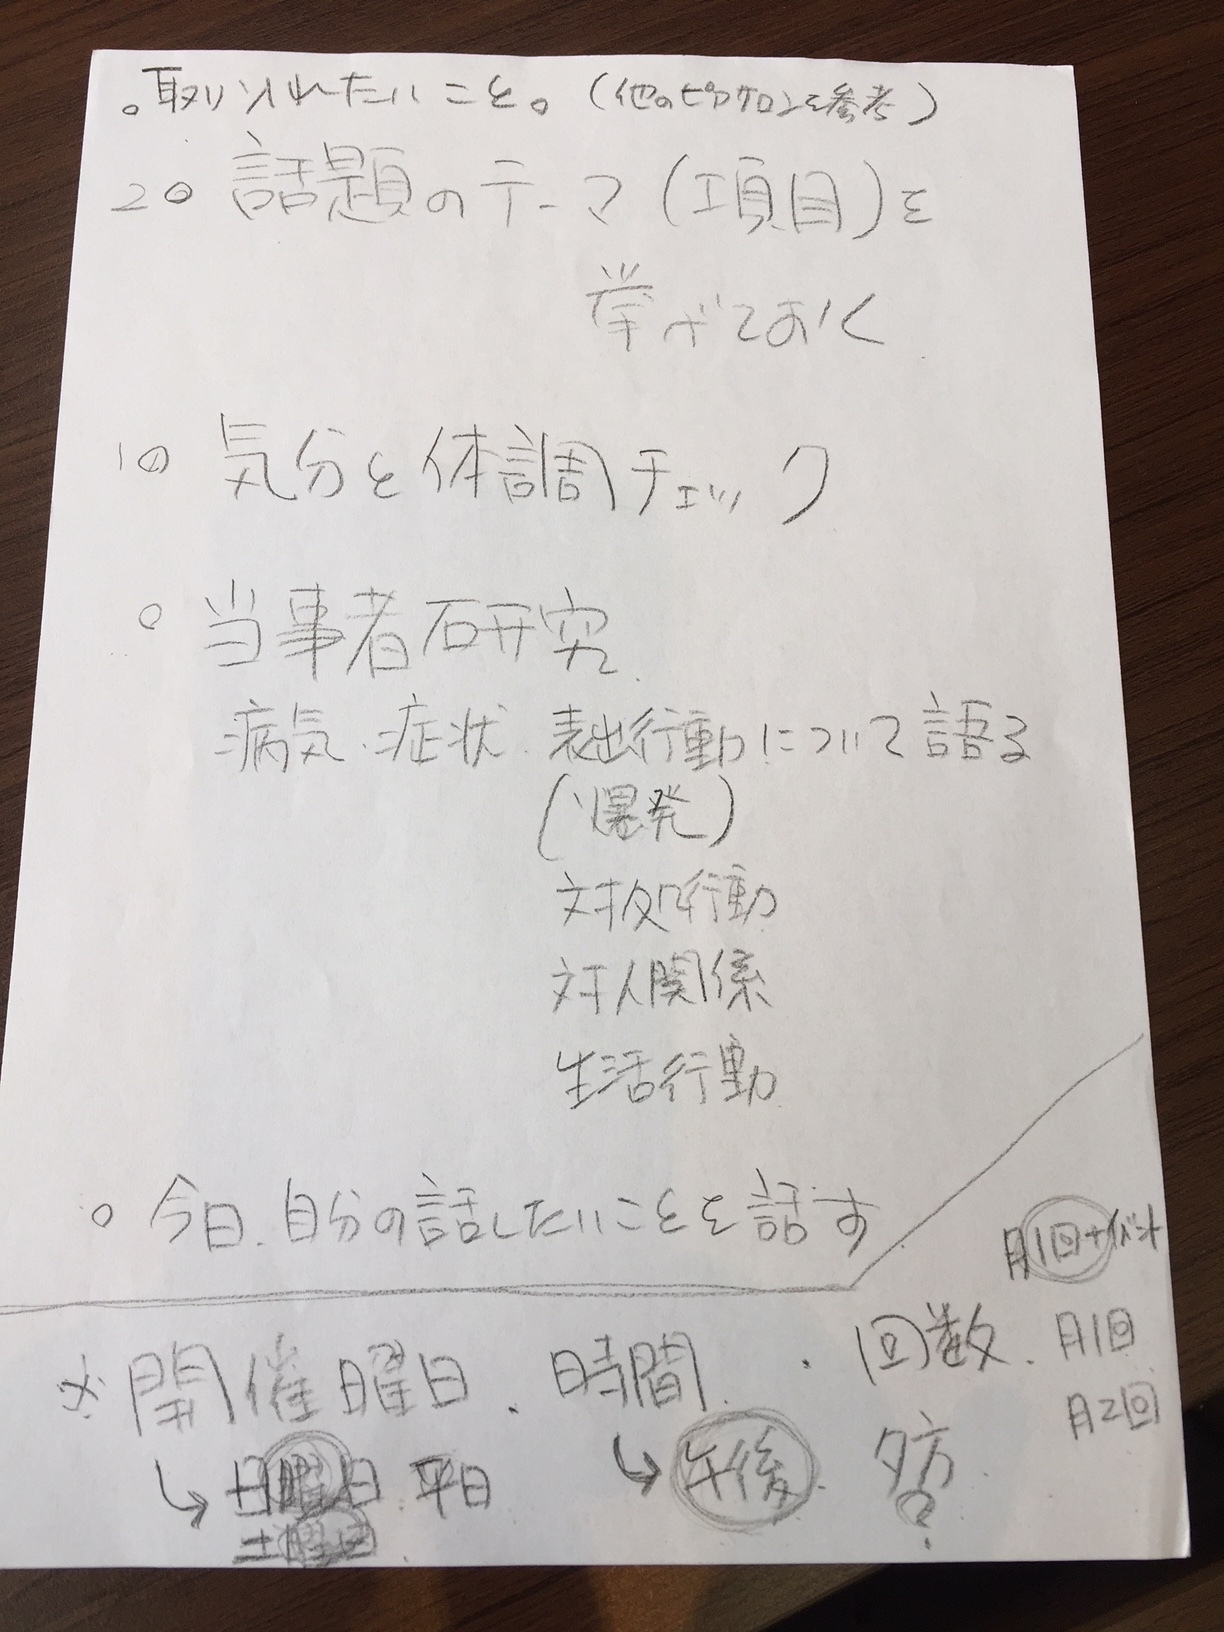 。取り入れたいこと。(他のピアサロンを参考)
2○ 話題のテーマ(項目)を
挙げておく
1○ 気分と体調チェック
○ 当事者研究
病気・症状・表出行動について語る
(爆発)
対処行動
対人関係
生活行動
○ 今日、自分の話したいことを話す
月1回+イベント
※ 開催曜日、時間 ・回数 月1回
月2回
↳ 日曜日 平日 ↳ 午後 夕方?
土曜日